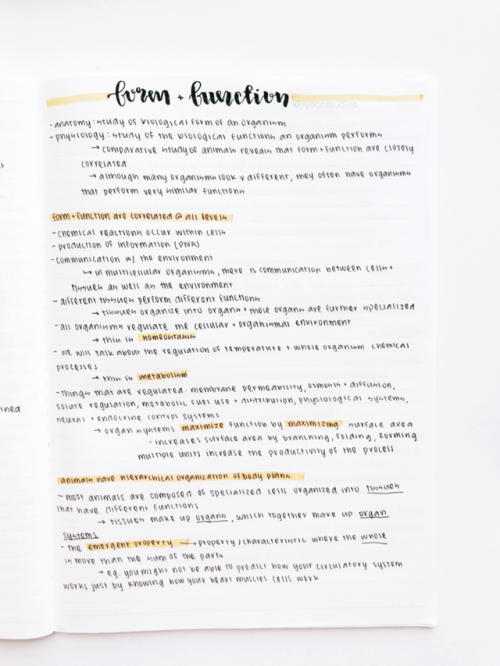 form + function
- anatomy: study of biological form of an organism
- physiology: study of the biological functions an organism performs
→ comparative study of animals reveals that form + function are closely
correlated
→ although many organisms look v different, they often have organisms
that perform very similar functions
form + function are correlated @ all levels
- chemical reactions occur within cells
- production of information (DNA)
- communication w/ the environment
↳ in multicellular organisms, there is communication between cells +
tissues as well as the environment
- different tissues perform different functions
→ tissues organize into organs + these organs are further specialized
- all organisms regulate the cellular + organismal environment
→ this is homeostasis
- we will talk about the regulation of temperature + whole organism chemical
processes
→ this is metabolism
- things that are regulated: membrane permeability, osmosis + diffusion,
solute regulation, metabolic fuel use + distribution, physiological systems,
neural + endocrine control systems
→ organ systems maximize function by maximizing surface area
• increases surface area by branching, folding, forming
multiple units increase the productivity of the process
animals have hierarchical organization of body plans
- most animals are composed of specialized cells organized into tissues
that have different functions
→ tissues make up organs, which together make up organ
systems
- the emergent property → property/characteristic where the whole
is more than the sum of the parts
→ eg. you might not be able to predict how your circulatory system
works just by knowing how your heart muscles cells work
ined